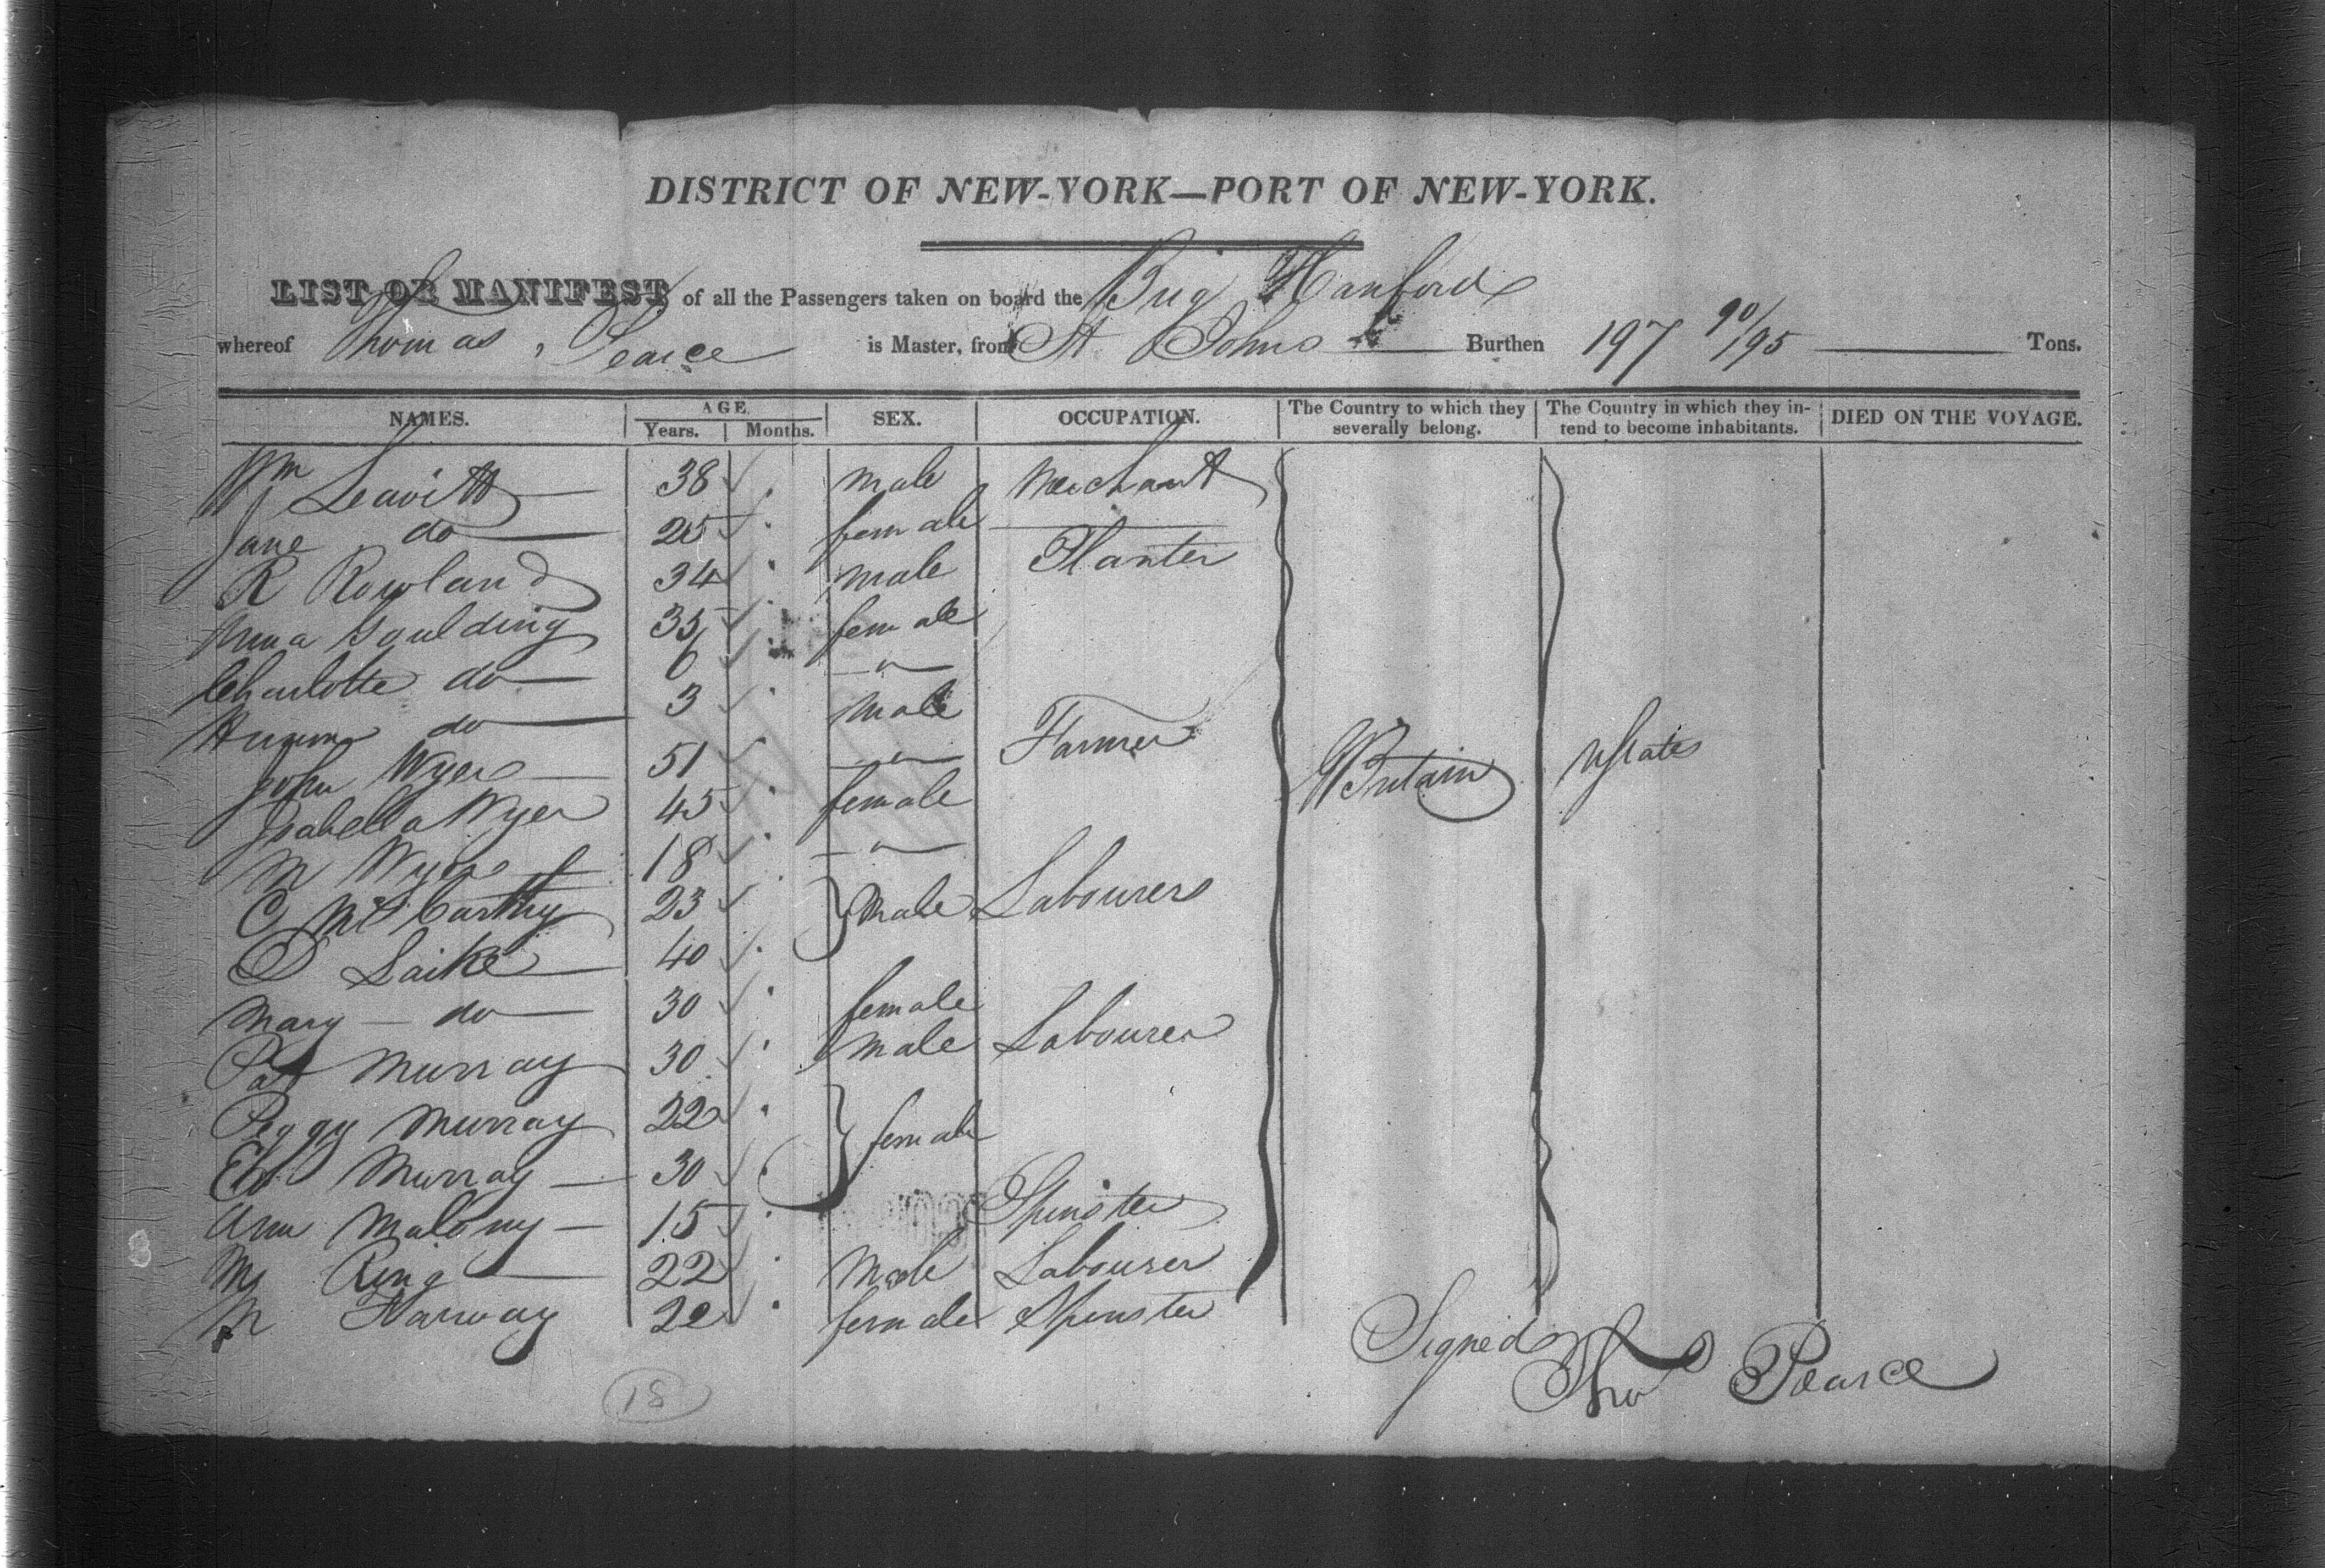 DISTRICT OF NEW-YORK—PORT OF NEW-YORK.
LIST OR MANIFEST of all the Passengers taken on board the Brig Hanford
whereof Thomas Pearce is Master, from St Johns Burthen 197 90/95 Tons.
NAMES. AGE. Years. Months. SEX. OCCUPATION. The Country to which they severally belong. The Country in which they intend to become inhabitants. DIED ON THE VOYAGE.
Wm Leavitt 38 male Merchant
Jane do 25 female
R Rowland 34 male Planter
Goulding 35 female
Charlotte do 6 — " —
do 3 male
John Wyers 51 — " — Farmer GBritain UStates
Isabella Wyer 45 female
M Wyers 18 — " —
C McCarthy 23 male Labourers
Laike 40
Mary — do 30 female
Pat Murray 30 male Labourer
Peggy Murray 22 female
Murray 30
Ann Malony 15 Spinster
Ring 22 Male Labourer
M Harway 22 female Spinster
Signed Thos Pearce
18